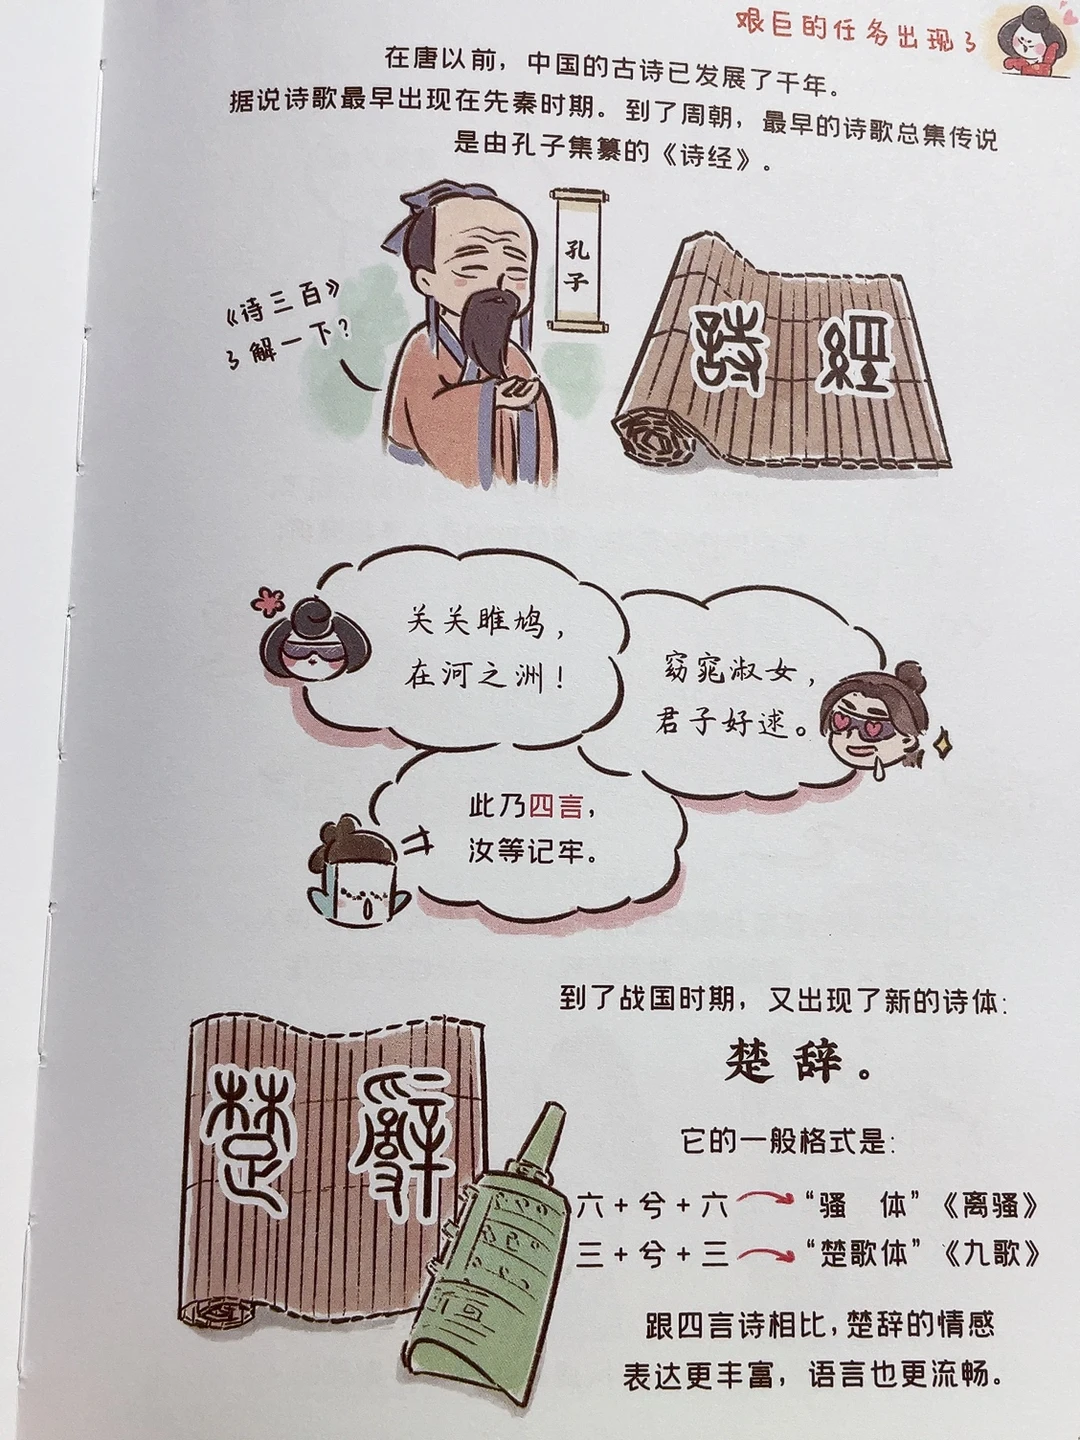 艰巨的任务出现了
在唐以前，中国的古诗已发展了千年。
据说诗歌最早出现在先秦时期。到了周朝，最早的诗歌总集传说
是由孔子集纂的《诗经》。
《诗三百》
了解一下？
孔
子
詩 經
关关雎鸠，
在河之洲！
窈窕淑女，
君子好逑。
此乃四言，
汝等记牢。
到了战国时期，又出现了新的诗体：
楚辞。
楚 辭
它的一般格式是：
六+兮+六 → “骚 体”《离骚》
三+兮+三 → “楚歌体”《九歌》
跟四言诗相比，楚辞的情感
表达更丰富，语言也更流畅。